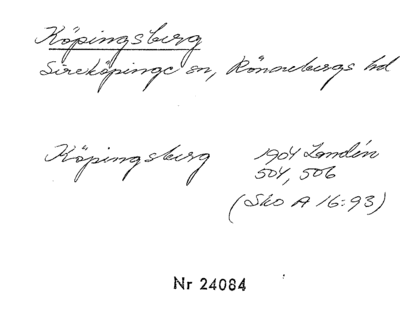 Köpingsberg
Sireköpinge sn, Rönnebergs hd
Köpingsberg 1904 Landén
504, 506
(Sko A 16:93)
Nr 24084